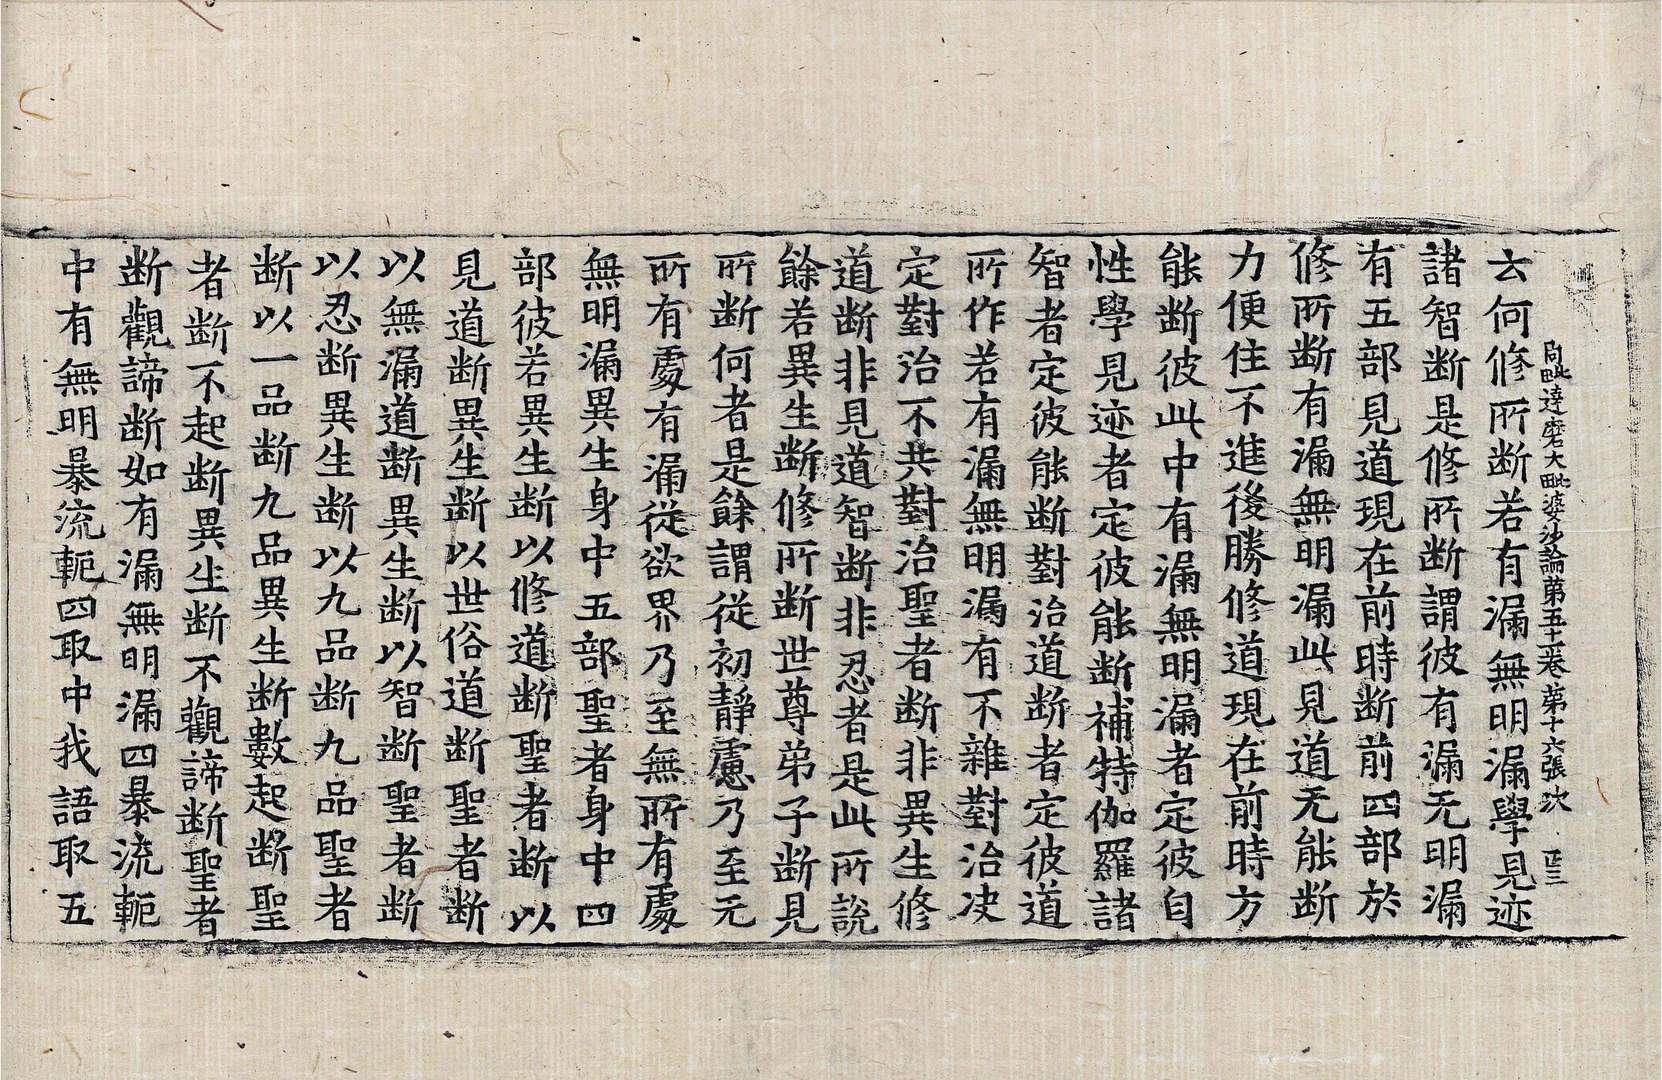 阿毗達磨大毗婆沙論第五十一卷 第十六張 次
云何修所断若有漏無明漏學見迹
諸智断是修所断謂彼有漏无明漏
有五部見道現在前時断前四部於
修所断有漏無明漏此見道无能断
力便住不進後勝修道現在前時方
能断彼此中有漏無明漏者定彼自
性學見迹者定彼能断補特伽羅諸
智者定彼能断對治道断者定彼道
所作若有漏無明漏有不雜對治决
定對治不共對治聖者断非異生修
道断非見道智断非忍者是此所說
餘若異生断修所断世尊弟子断見
所断何者是餘謂從初靜慮乃至无
所有處有漏從欲界乃至無所有處
無明漏異生身中五部聖者身中四
部彼若異生断以修道断聖者断以
見道断異生断以世俗道断聖者断
以無漏道断異生断以智断聖者断
以忍断異生断以九品断九品聖者
断以一品断九品異生断數起断聖
者断不起断異生断不觀諦断聖者
断觀諦断如有漏無明漏四暴流軛
中有無明暴流軛四取中我語取五